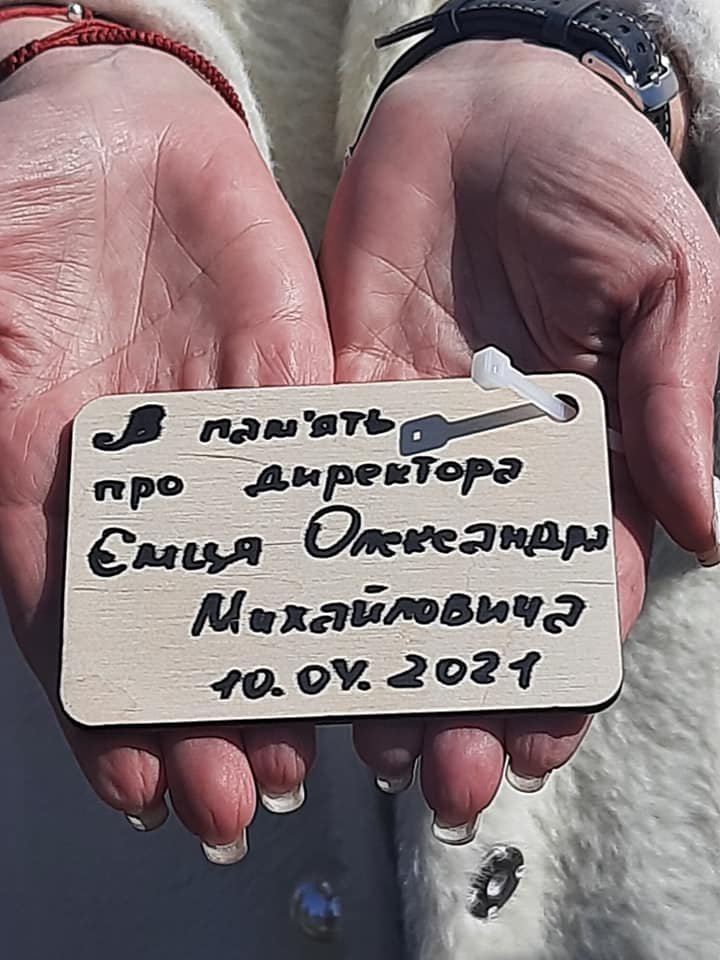 В пам'ять
про директора
Ємця Олександра
Михайловича
10.04.2021